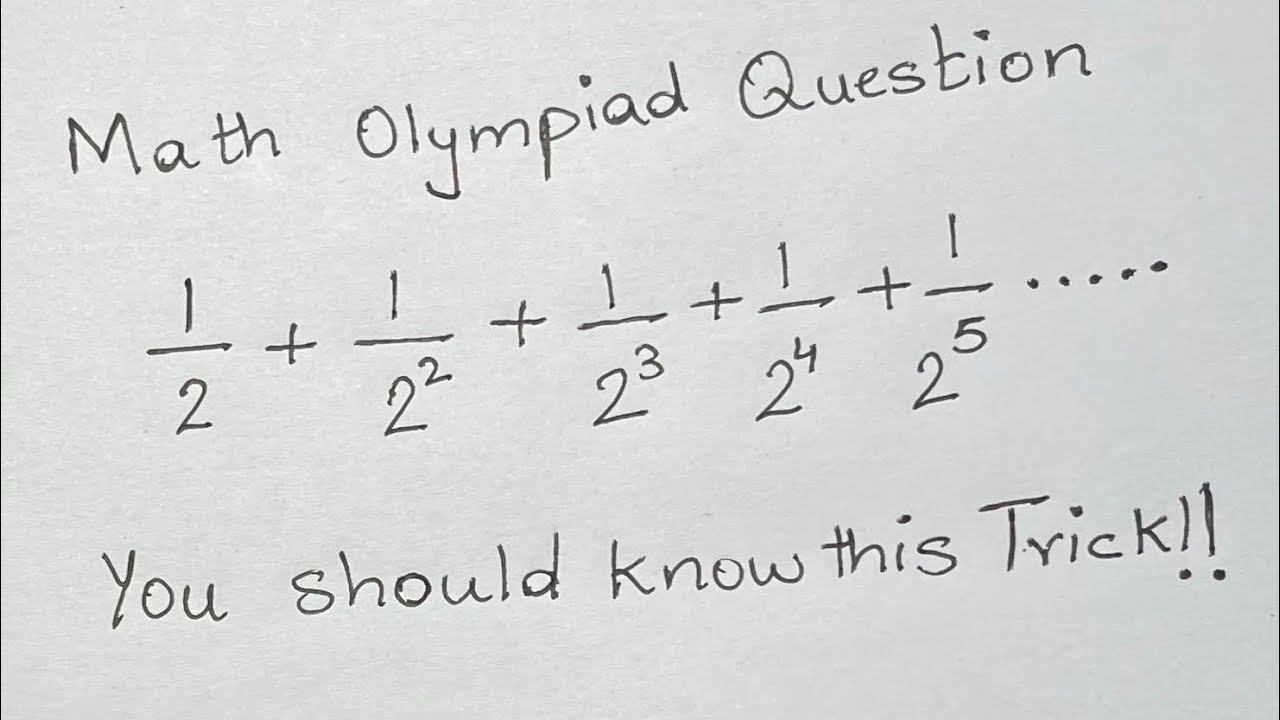 Math Olympiad Question
1/2 + 1/2² + 1/2³ + 1/2⁴ + 1/2⁵ .....
You should know this Trick!!